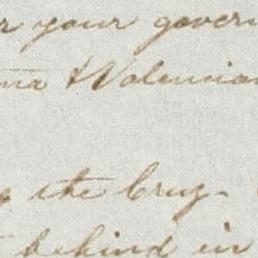 your govern
& Valencian
the Cruz-
behind in